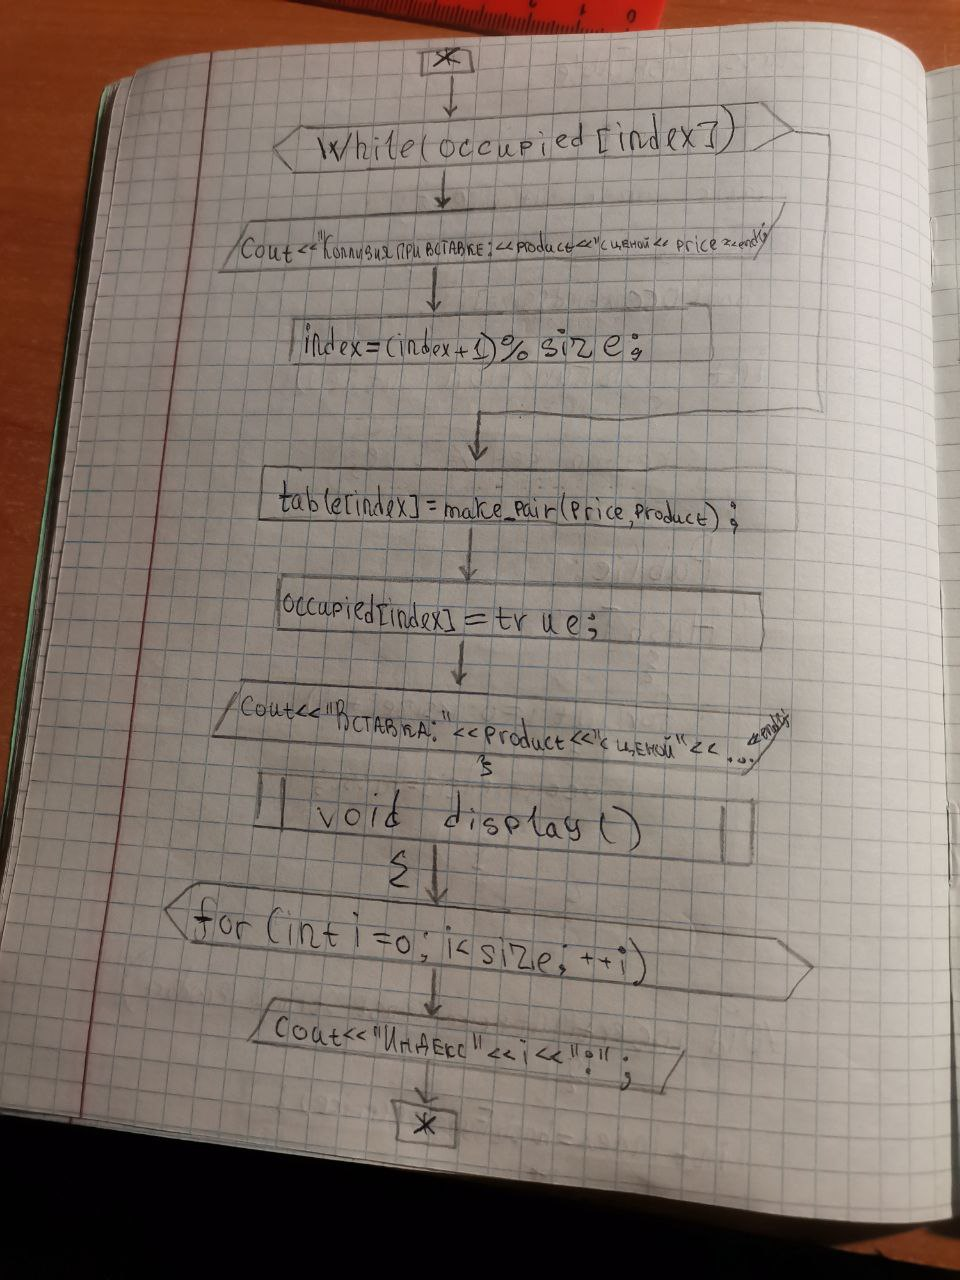 *
While(occupied[index])
Cout<<"Коллизия при вставке:<<product<<"с ценой<< price <<endl;
index=(index+1)%size;
table[index]=make_pair(price,product);
occupied[index]=true;
Cout<<"Вставка:"<<product<<"с ценой"<<...<<endl;
}
void display()
{
for (int i=0; i<size; ++i)
Cout<<"Индекс"<<i<<":";
*